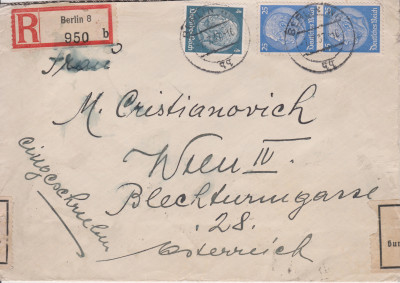 R
Berlin 8
950 b
BERLIN
25
Deutsches Reich
25
Deutsches Reich
M. Cristianovich
Wien IV.
Blechturmgasse
28.
Österreich
eingeschrieben